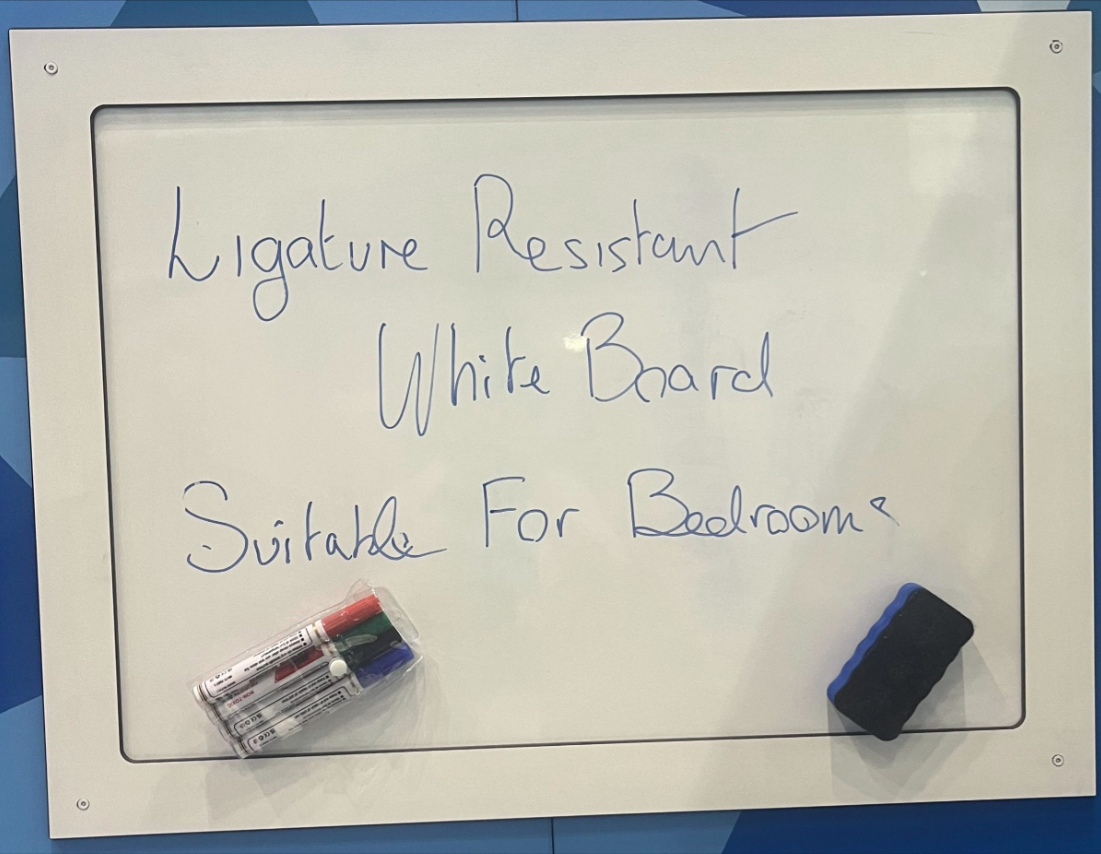 Ligature Resistant
White Board
Suitable For Bedrooms